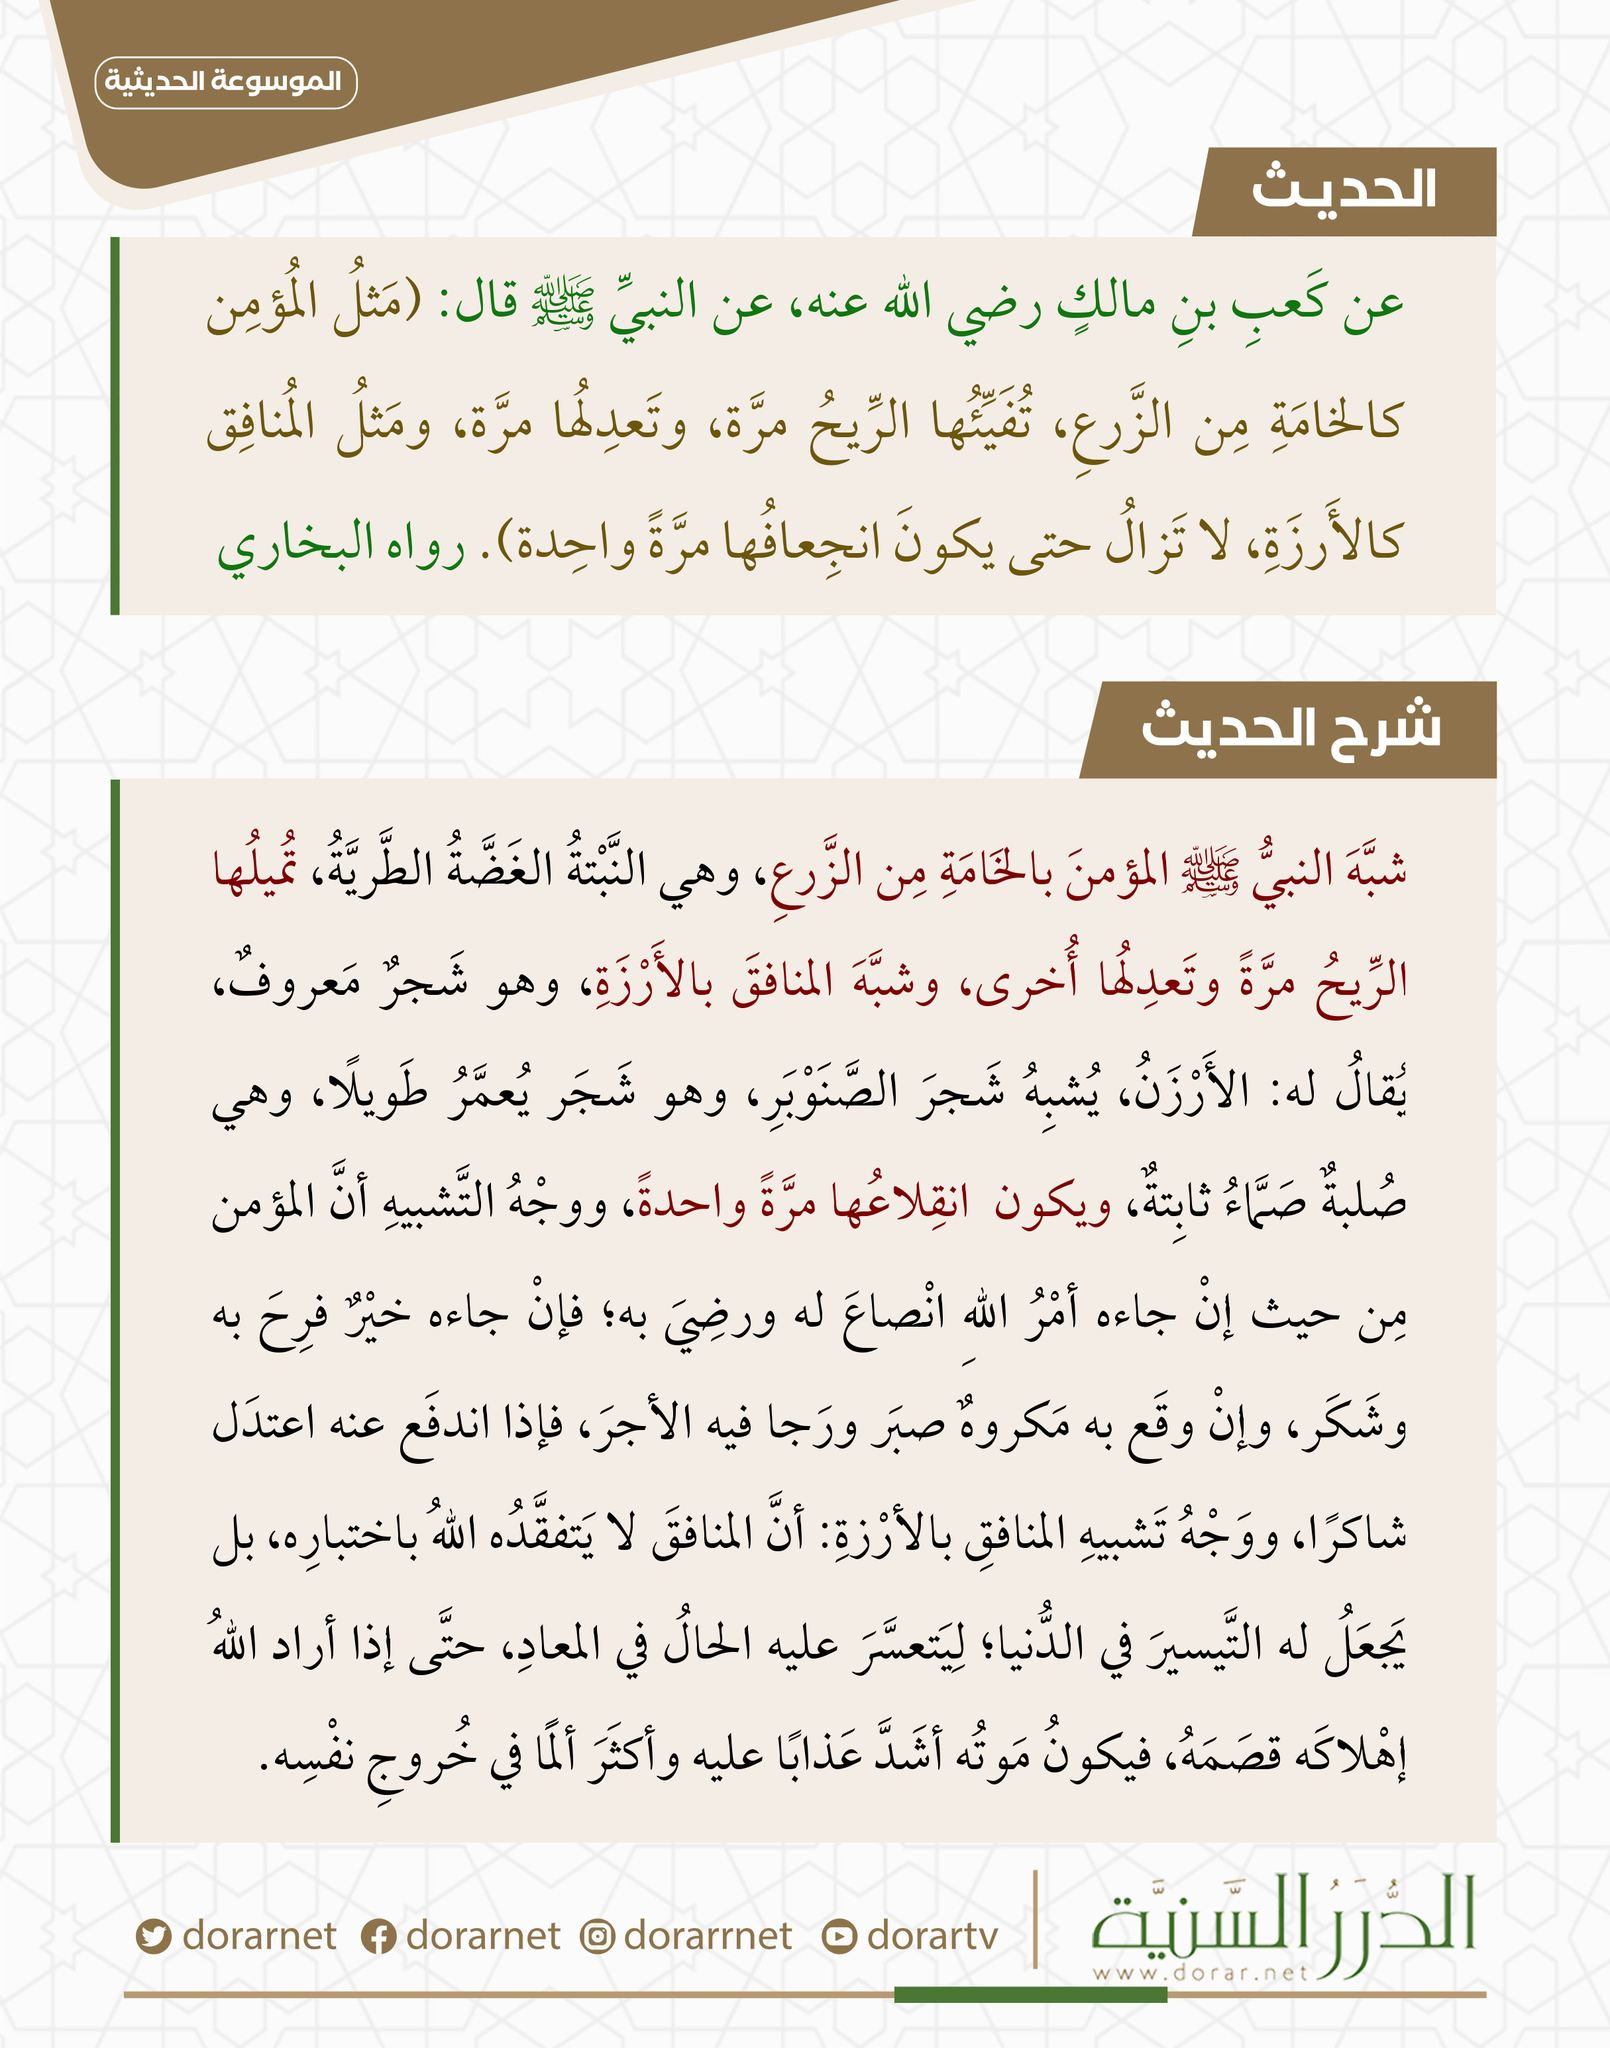 الموسوعة الحديثية
الحديث
عن كَعبِ بنِ مالكٍ رضي الله عنه، عن النبيِّ ﷺ قال: (مَثلُ المُؤمِن
كالخامَةِ مِن الزَّرعِ، تُفَيِّئُها الرِّيحُ مرَّة، وتَعدِلُها مرَّة، ومَثلُ المُنافِق
كالأَرزَةِ، لا تَزالُ حتى يكونَ انجِعافُها مرَّةً واحِدة). رواه البخاري
شرح الحديث
شبَّهَ النبيُّ ﷺ المؤمنَ بالخَامَةِ مِن الزَّرعِ، وهي النَّبْتةُ الغَضَّةُ الطَّريَّةُ، تُميلُها
الرِّيحُ مرَّةً وتَعدِلُها أُخرى، وشبَّهَ المنافقَ بالأَرْزَةِ، وهو شَجرٌ مَعروفٌ،
يُقالُ له: الأَرْزَنُ، يُشبِهُ شَجرَ الصَّنَوْبَرِ، وهو شَجَر يُعمَّرُ طَويلًا، وهي
صُلبةٌ صَمَّاءُ ثابِتةٌ، ويكون انقِلاعُها مرَّةً واحدةً، ووجْهُ التَّشبيهِ أنَّ المؤمن
مِن حيث إنْ جاءه أمْرُ اللهِ انْصاعَ له ورضِيَ به؛ فإنْ جاءه خيْرٌ فرِحَ به
وشَكَر، وإنْ وقَع به مَكروهٌ صبَر ورَجا فيه الأجرَ، فإذا اندفَع عنه اعتدَل
شاكرًا، ووَجْهُ تَشبيهِ المنافقِ بالأرْزةِ: أنَّ المنافقَ لا يَتفقَّدُه اللهُ باختبارِه، بل
يَجعَلُ له التَّيسيرَ في الدُّنيا؛ لِيَتعسَّرَ عليه الحالُ في المعادِ، حتَّى إذا أراد اللهُ
إهْلاكَه قصَمَهُ، فيكونُ مَوتُه أشَدَّ عَذابًا عليه وأكثَرَ ألمًا في خُروجِ نفْسِه.
الدُّرَرُ السَّنيَّة
www.dorar.net
dorarnet dorarnet dorarrnet dorartv